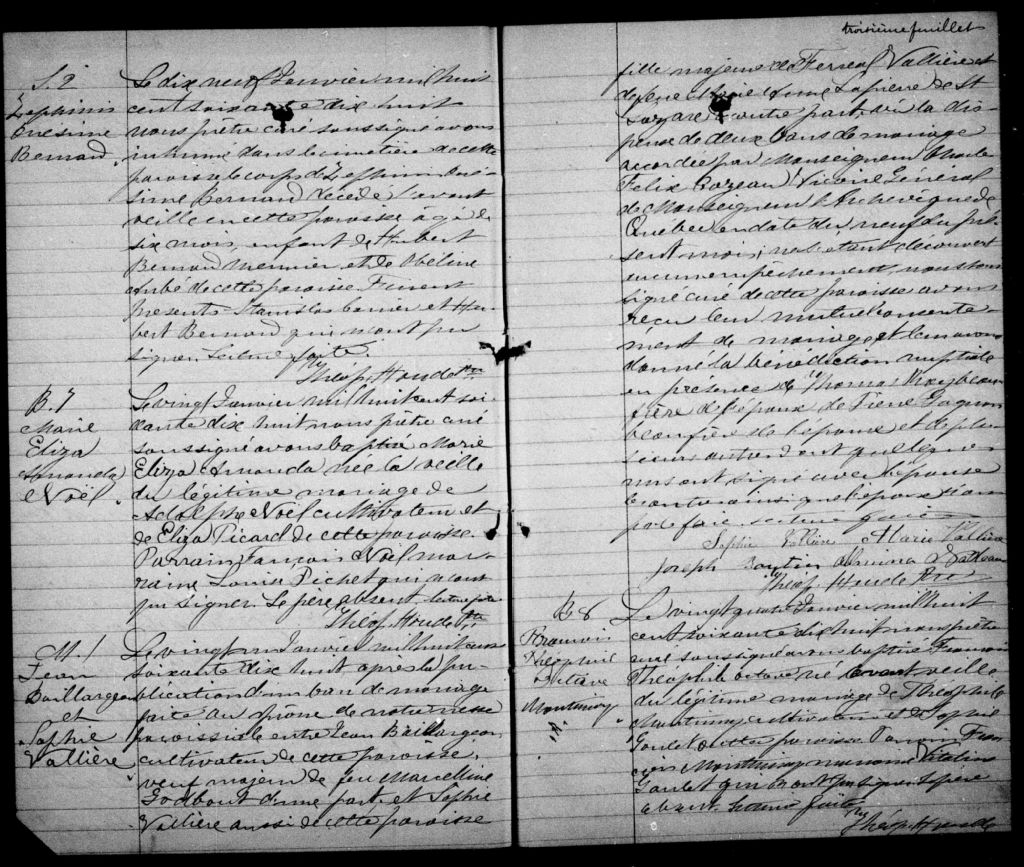 S. 2
Zephirin
Onesime
Bernard.
Le dix neuf Janvier mil huit
cent soixante dix huit
nous prêtre curé soussigné avons
inhumé dans le cimetière de cette
paroisse le corps de Zephirin Oné-
sime Bernard décédé l'avant
veille en cette paroisse agé de
six mois, enfant de Hubert
Bernard meunier et de Obéline
de cette paroisse. Furent
presents Stanislas et Hu-
bert Bernard qui n'ont pu
signer. Lecture faite.
Théop. Houde Ptre
B. 7
Marie
Eliza
Amanda
Noël.
Le vingt Janvier mil huit cent soi-
xante dix huit nous prêtre curé
soussigné avons baptisé Marie
Eliza Amanda née la veille
du légitime mariage de
Adolphe Noël cultivateur et
de Eliza Picard de cette paroisse.
Parrain François Noël mar-
raine Louise Pichet qui n'ont
pu signer. Le père absent. Lecture faite
Théop. Houde Ptre
M. 1
Jean
Baillargeon
et
Sophie
Vallière
Le vingt un Janvier mil huit cent
soixante dix huit, après la pu-
blication d'un ban de mariage
faite au prône de notre messe
paroissiale entre Jean Baillargeon
cultivateur de cette paroisse,
veuf majeur de feu Marcelline
Godbout d'une part, et Sophie
Vallière aussi de cette paroisse
troisième feuillet
fille majeure de Vallière et
de Marie Anne Lapierre de St
Lazare d'autre part, vu la dis-
pense de deux bans de mariage
accordée par Monseigneur Charles
Felix Cazeau Vicaire Général
de Monseigneur l'Archevêque de
Québec en date du neuf du pré-
sent mois; ne s'étant découvert
aucun empêchement, nous sous-
signé curé de cette paroisse avons
reçu leur mutuel consente-
ment de mariage et leur avons
donné la bénédiction nuptiale
en présence de Thomas beau
frère de l'époux de Pierre Gagnon
beaufrère de l'epouse et de plu-
sieurs autres dont quelques
uns ont signé avec l'épouse
le contraire ainsi que l'époux n'ayant
pu le faire. Lecture faite
Sophie Vallière Marie Vallière
Joseph Almina
Théop. Houde Ptre
B. 8
François
Théophile
Octave
Montminy
Le vingt quatre Janvier mil huit
cent soixante dix huit nous prêtre
curé soussigné avons baptisé François
Théophile Octave né l'avant veille
du légitime mariage de Théophile
Montminy cultivateur et de Sophie
Goulet de cette paroisse. Parrain Fran-
çois Montminy marraine Vitaline
Goulet qui n'ont pu signer. Le père
absent. Lecture faite
Théop. Houde